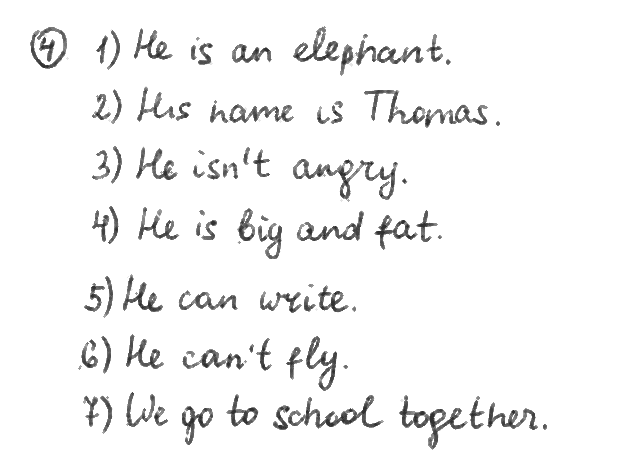 ④ 1) He is an elephant.
2) His name is Thomas.
3) He isn't angry.
4) He is big and fat.
5) He can write.
6) He can't fly.
7) We go to school together.